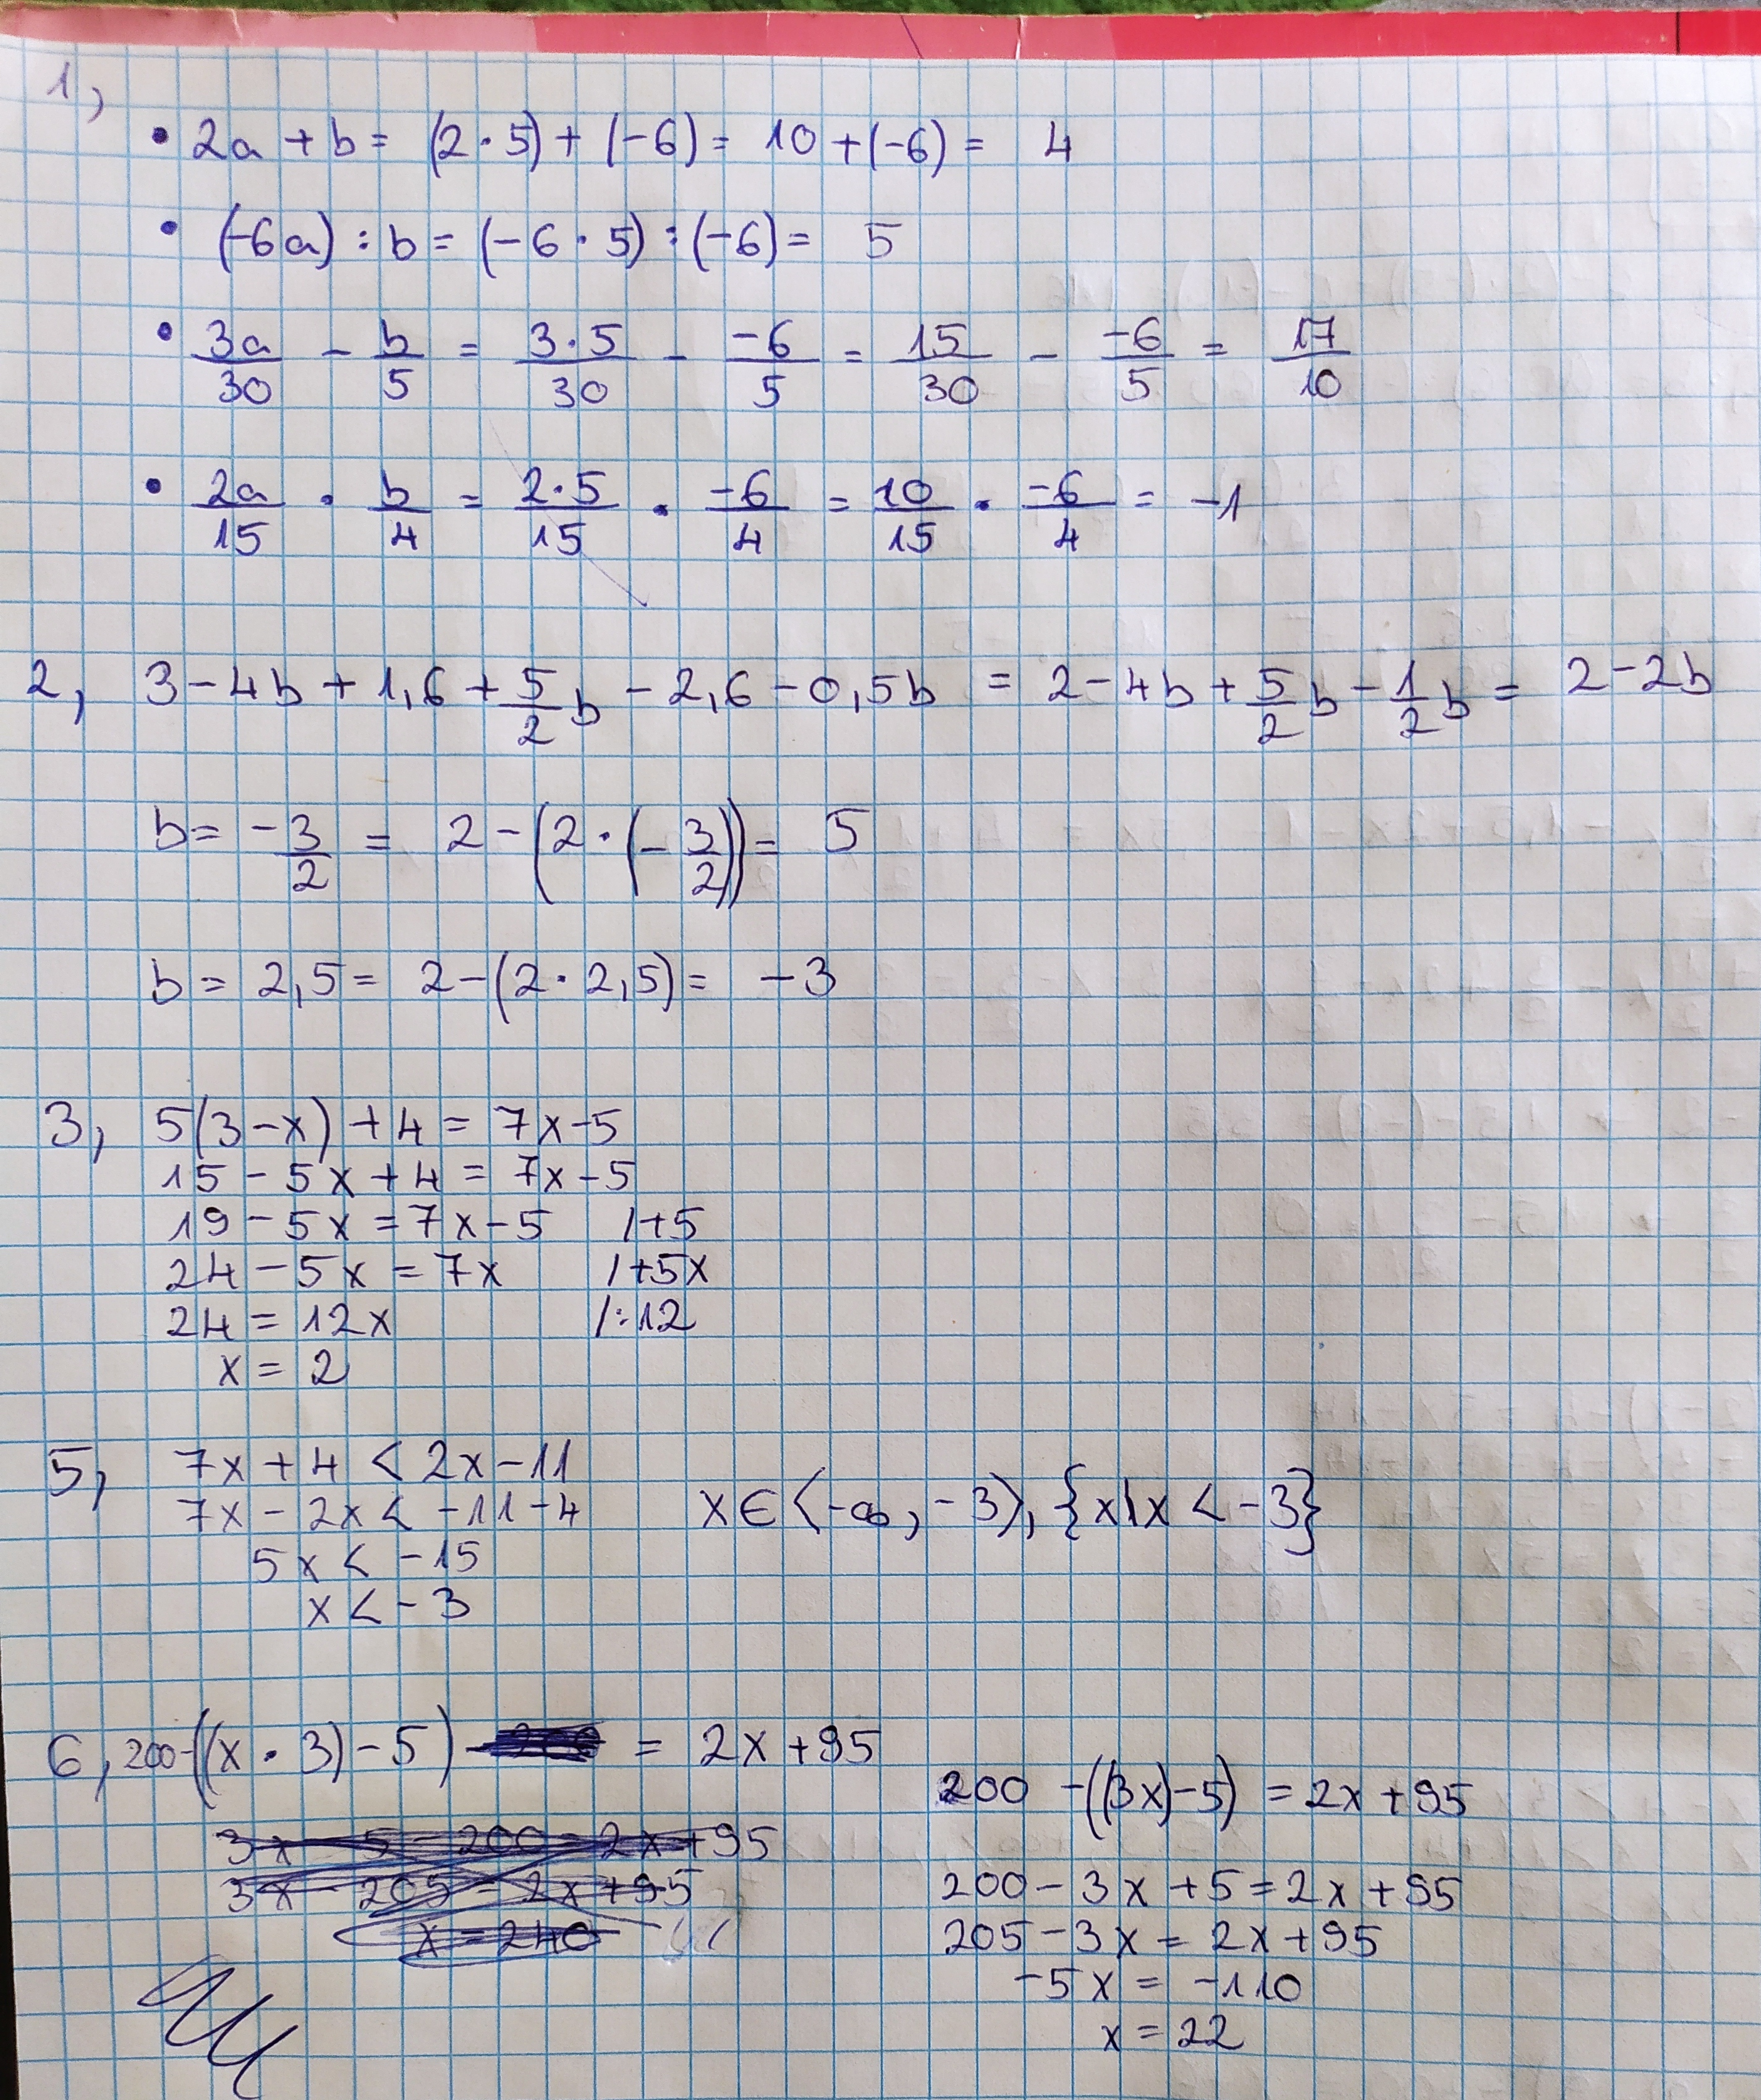 1,
• 2a + b = (2 · 5) + (-6) = 10 + (-6) = 4
• (-6a) : b = (-6 · 5) : (-6) = 5
• 3a/30 - b/5 = 3·5/30 - -6/5 = 15/30 - -6/5 = 17/10
• 2a/15 · b/4 = 2·5/15 · -6/4 = 10/15 · -6/4 = -1
2, 3 - 4b + 1,6 + 5/2 b - 2,6 - 0,5b = 2 - 4b + 5/2 b - 1/2 b = 2 - 2b
b = -3/2 = 2 - (2 · (-3/2)) = 5
b = 2,5 = 2 - (2 · 2,5) = -3
3, 5(3-x) + 4 = 7x - 5
15 - 5x + 4 = 7x - 5
19 - 5x = 7x - 5 /+5
24 - 5x = 7x /+5x
24 = 12x /:12
x = 2
5, 7x + 4 < 2x - 11
7x - 2x < -11 - 4 x ∈ ⟨-∞, -3), {x|x < -3}
5x < -15
x < -3
6, 200-((x · 3) - 5) = 2x + 95
3x - 5 - 200 = 2x + 95
3x - 205 = 2x + 95
x = 240
200 - ((3x) - 5) = 2x + 95
200 - 3x + 5 = 2x + 95
205 - 3x = 2x + 95
-5x = -110
x = 22